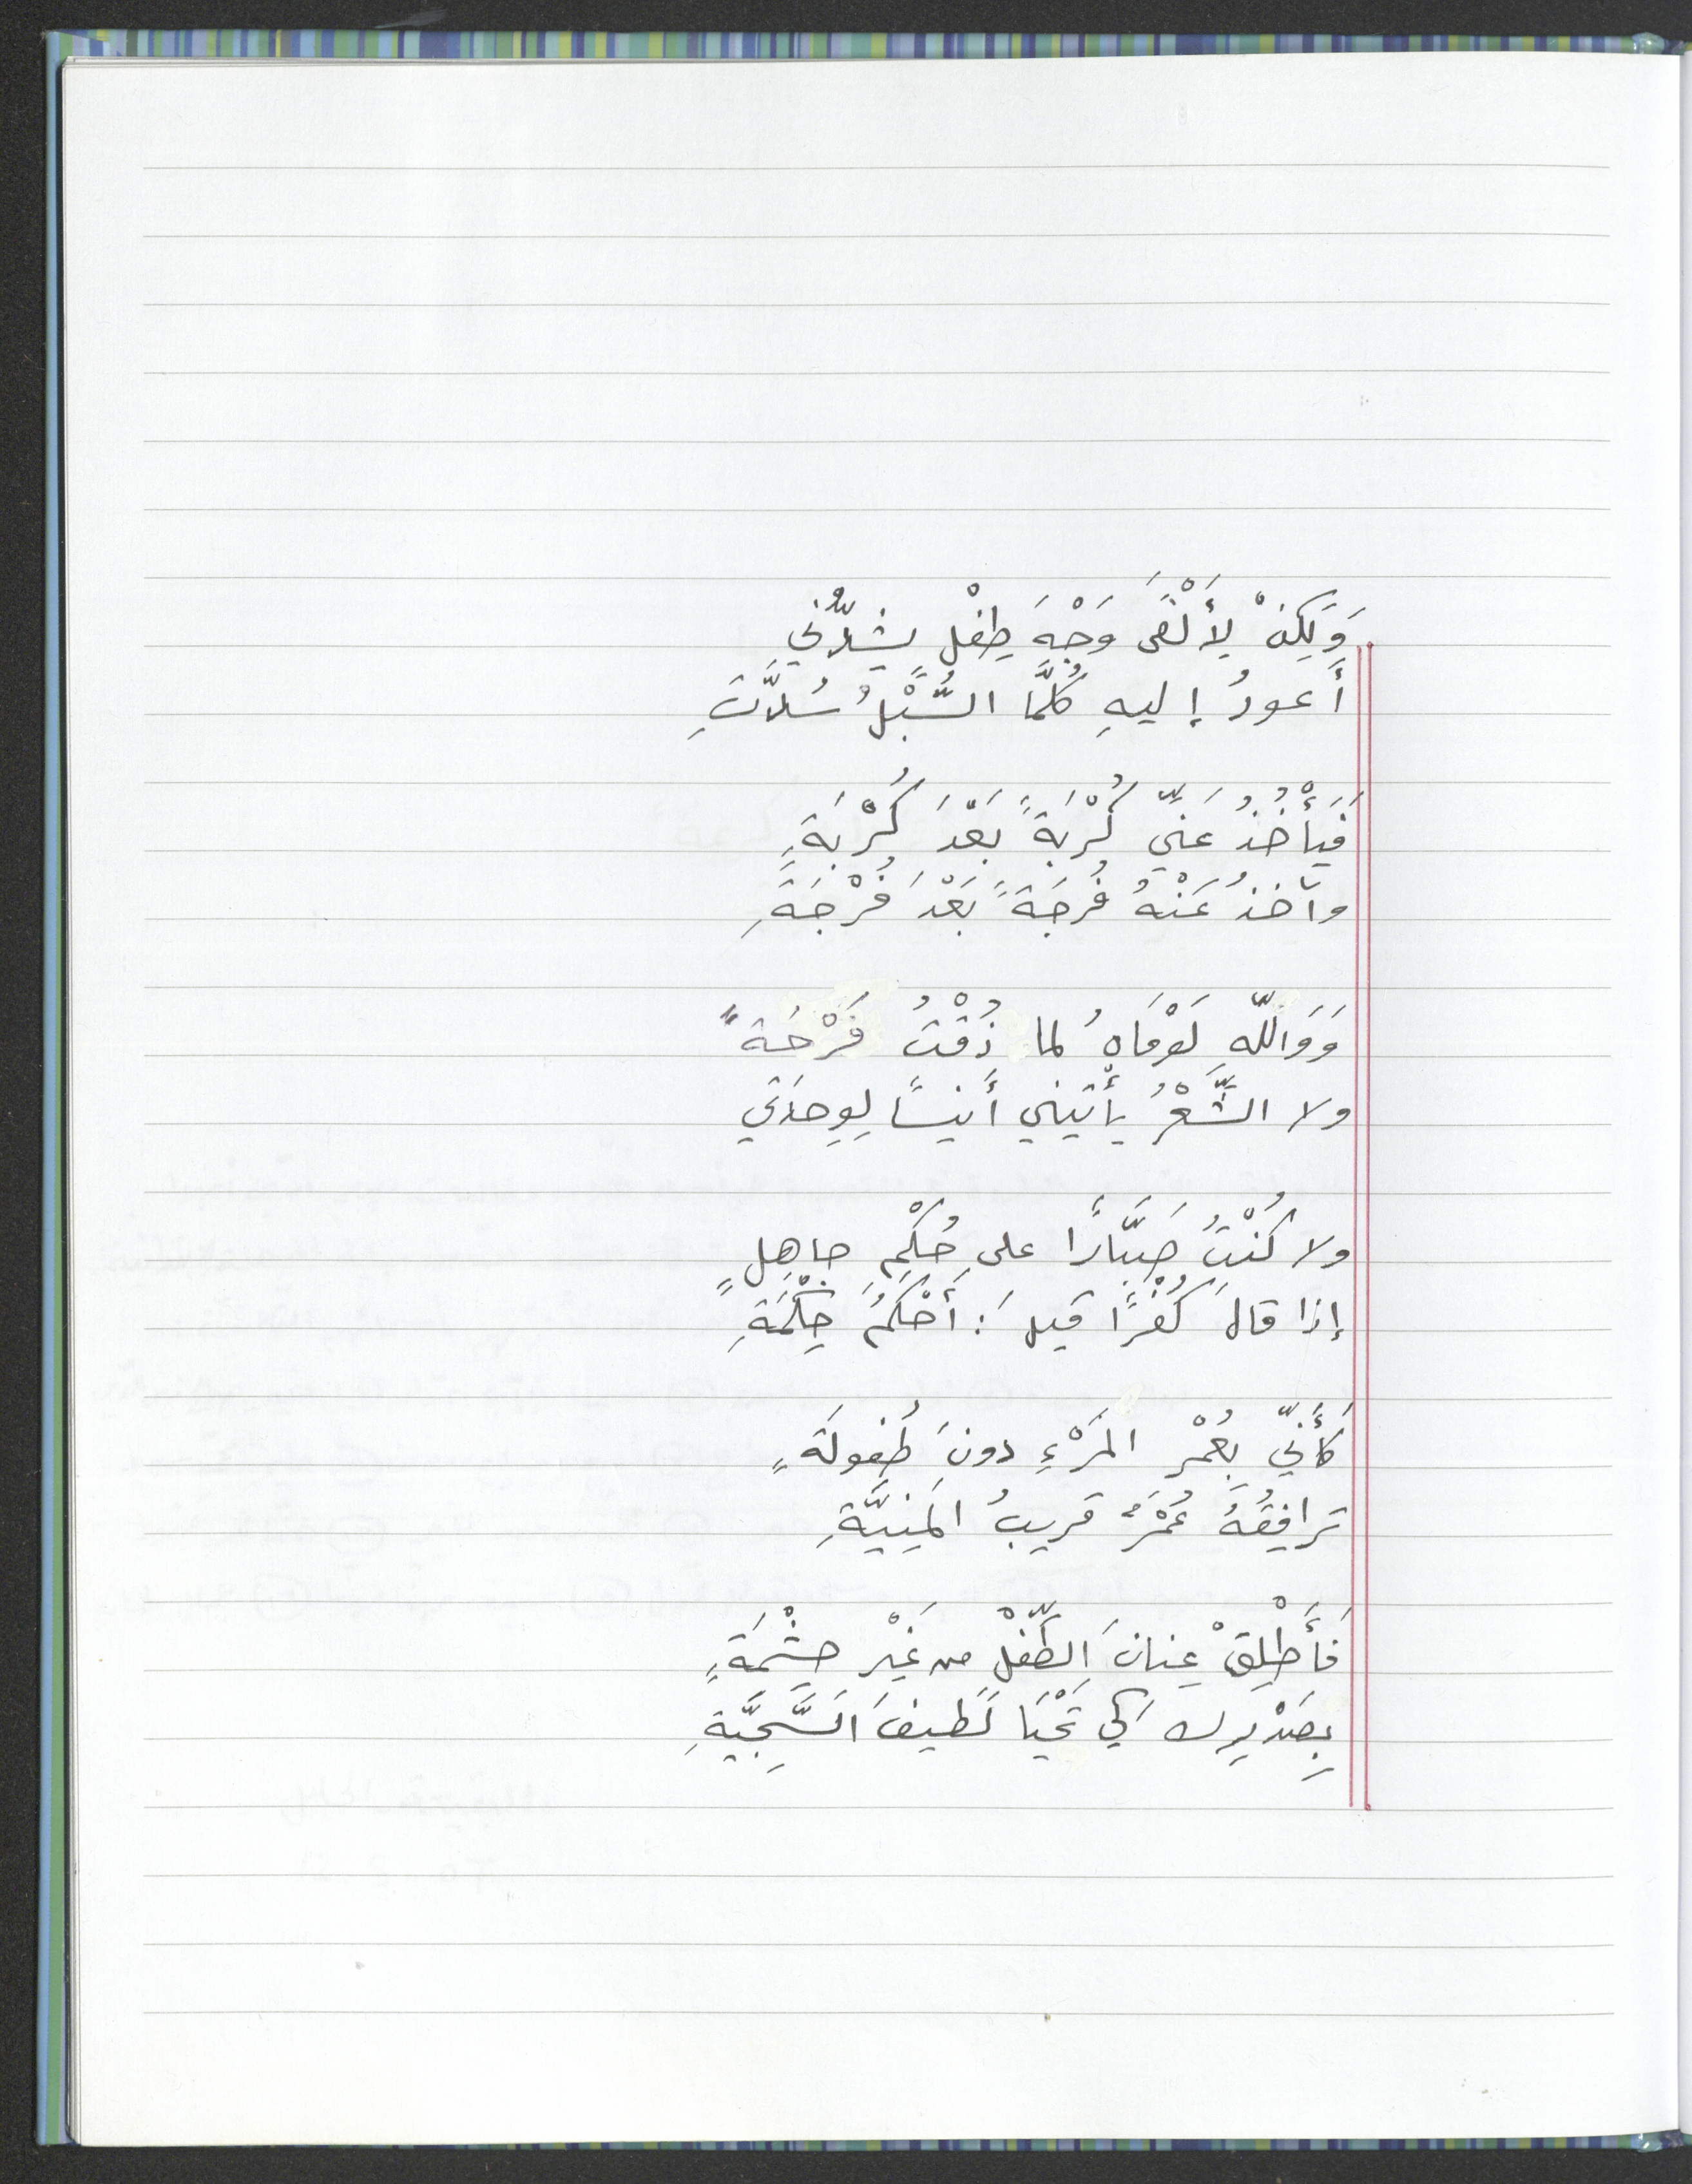 وَلَكِنْ لِأَلْقَى وَجْهَ طِفْلٍ يشدُّني
أَعودُ إليهِ كُلَّمَا السُّبْلُ سُدَّتِ
فَيَأْخُذُ عَنِّي كُرْبَةً بَعْدَ كُرْبَةٍ
وآخذُ عَنْهُ فُرجَةً بَعْدَ فُرْجَةِ
وَوَاللّهِ لَوْمَاهُ لما ذُقْتُ فَرْحَةً
ولا الشِّعْرُ يأْتيني أَنيسًا لِوِحدَتي
ولا كُنْتُ صَبَّارًا على حُكْمِ جاهِلٍ
إذا قالَ كُفْرًا قيلَ: أَحْكَمُ حِكْمَةِ
كَأَنِّي بِعُمْرِ المَرْءِ دونَ طُفولَةٍ
تُرافِقُهُ عُمْرٌ قريبُ المَنِيَّةِ
فَأَطْلِقْ عِنانَ الطِّفْلِ من غَيْرِ حِشْمَةٍ
بِصَدْرِك كي تَحْيَا لَطيفَ السَّجِيَّةِ